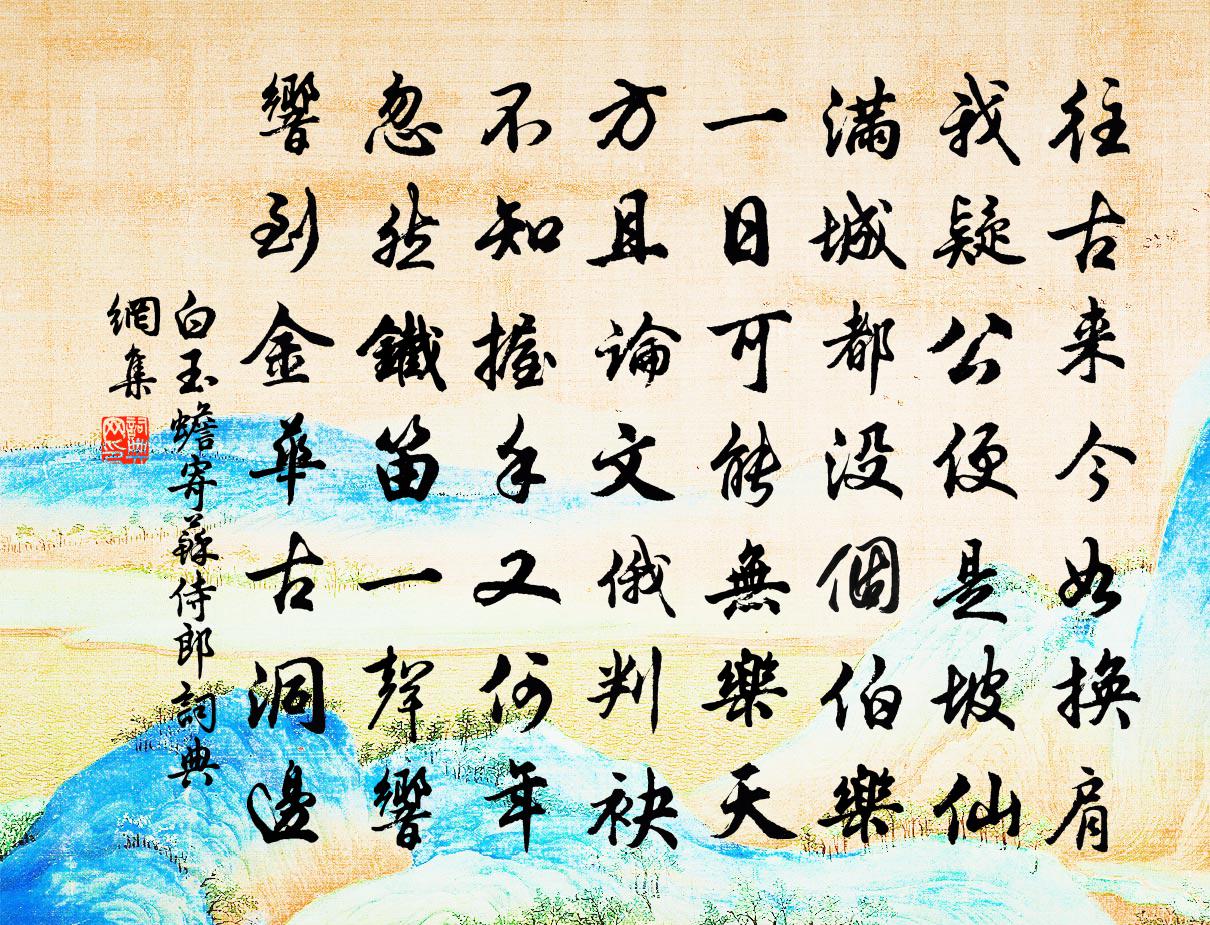 往古来今如換肩
我疑公便是坡仙
滿城都没個伯樂
一日可能無樂天
方且論文俄判袂
不知握手又何年
忽然鐵笛一聲響
響到金華古洞邊
白玉蟾寄蘇侍郎詞典
網集